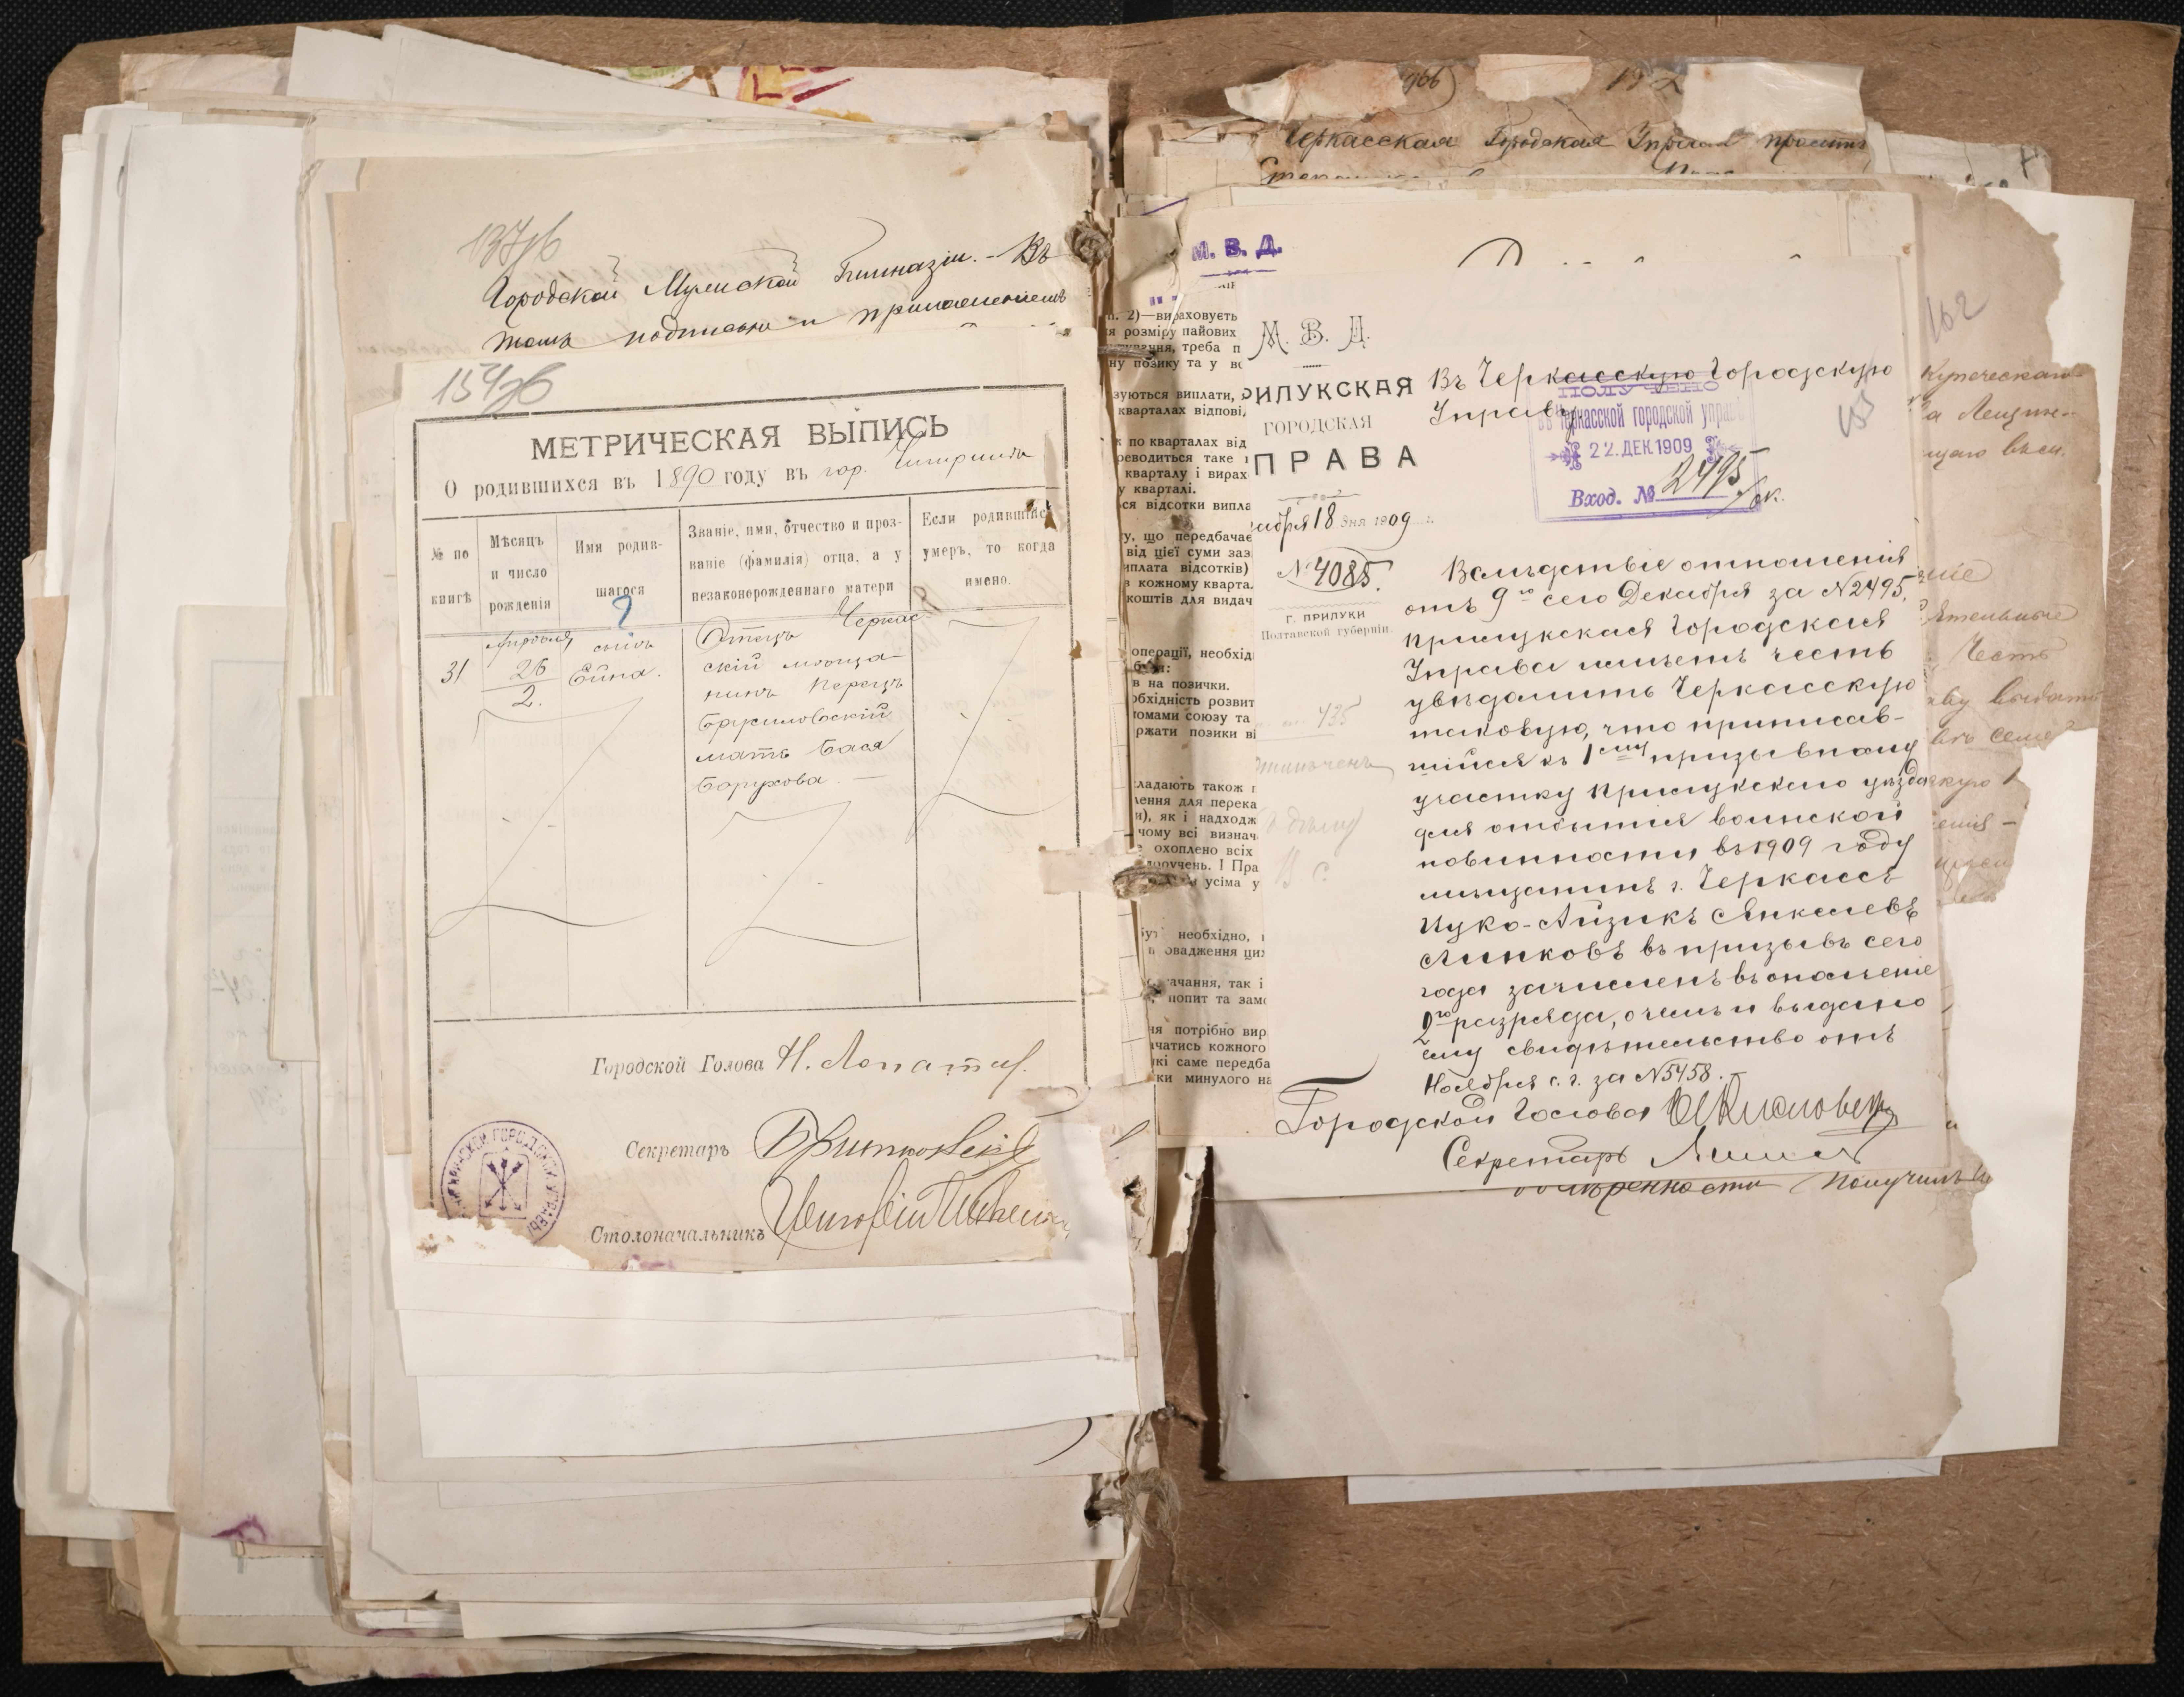 137об
Городской Мужской Гимназіи. - Въ
томъ подписью и приложеніемъ
154об
МЕТРИЧЕСКАЯ ВЫПИСЬ
О родившихся въ 1890 году въ гор. Чигиринѣ
№ по книгѣ
Мѣсяцъ и число рожденія
Имя родив-
шагося
Званіе, имя, отчество и проз-
ваніе (фамилія) отца, а у
незаконорожденнаго матери
Если родившійся
умеръ, то когда
имено.
31
Апрѣля
26
2.
сынъ
Ейна.
Отецъ Черкас-
скій мѣща-
нинъ Перецъ
Брусиловскій
мать Бася
Борухова. —
Городской Голова Н. Лопата
Секретарь
Столоначальникъ
966 192
Черкасская Городская Управа просит
М. В. Д.
п. 2)—вираховуеть
я розміру пайових
треба п
ну позику та у во
зуються виплати,
кварталах відпові
к по кварталах від
реводиться таке
кварталу і вирах
у кварталі.
ся відсотки випла
у, що передбачає
від цієї суми заз
иплата відсотків)
в кожному кварта
коштів для видач
операції, необхід
в на позички.
обхідність розвит
томами союзу та
ржати позики ві
кладають також
лення для перека
и), як і надходж
чому всі визнач
охоплено всіх
доручень. І Пра
усіма у
необхідно,
овадження цих
ачання, так і
попит та замо
ня потрібно вир
ачатись кожного
які саме передба
ки минулого на
М. В. Д.
РИЛУКСКАЯ
ГОРОДСКАЯ
ПРАВА
абря 18 дня 1909 г.
№ 4085.
Г. ПРИЛУКИ
Полтавской губерніи.
435
Въ Черкасскую Городскую
Управу
ПОЛУЧЕНО
въ Черкасской городской управ
22. ДЕК 1909
Вход. № 2495
153
Вслѣдствіе отношенія
отъ 9го сего Декабря за №2495,
Прилукская Городская
Управа имѣетъ честь
увѣдомить Черкасскую
таковую, что приписав-
шійся къ 1му призывному
участку Прилукскаго уѣзда
для отбытія воинской
повинности въ 1909 году
мѣщанинъ г. Черкассъ
Ицко-Айзикъ Янкелевъ
Линковъ въ призывъ сего
года зачисленъ въ ополченіе
2го разряда, о чемъ и выдано
ему свидѣтельство отъ
Ноября с. г. за №5458. —
Городской Голова
Секретарь
получилъ
162
Купеческаго
честь
выдать